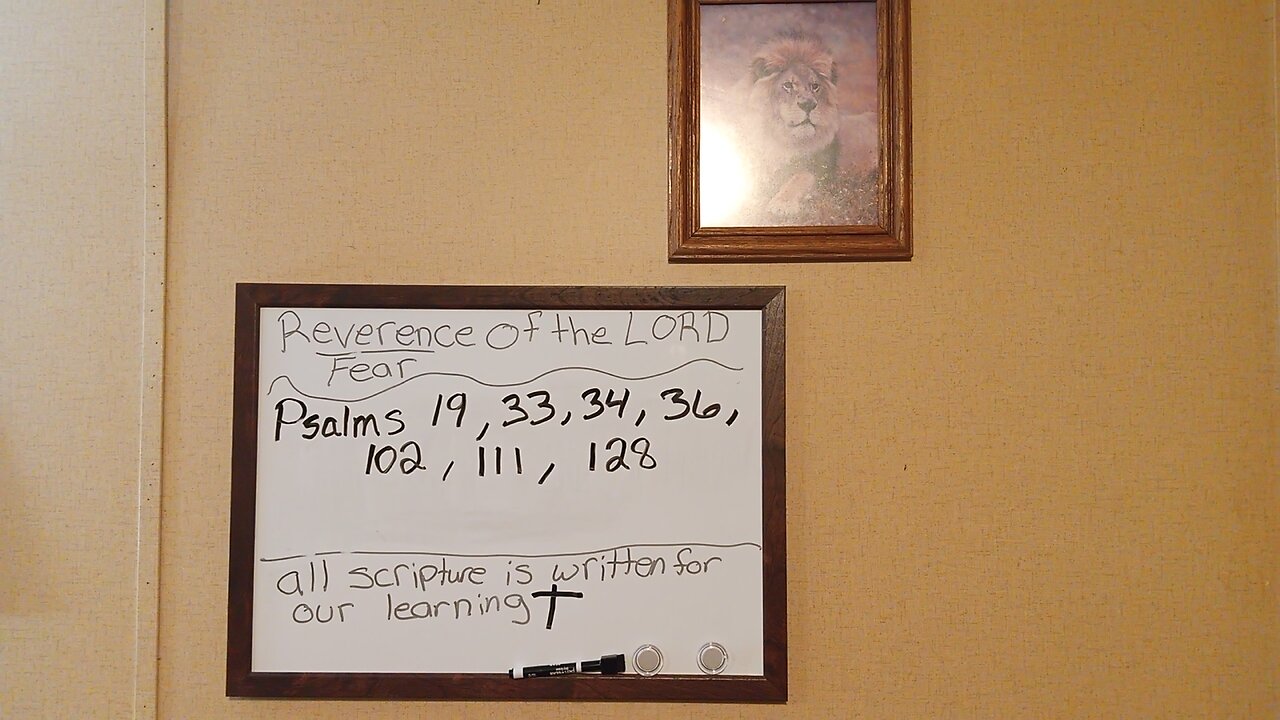 Reverence of the LORD
Fear
Psalms 19, 33, 34, 36,
102, 111, 128
all scripture is written for
our learning